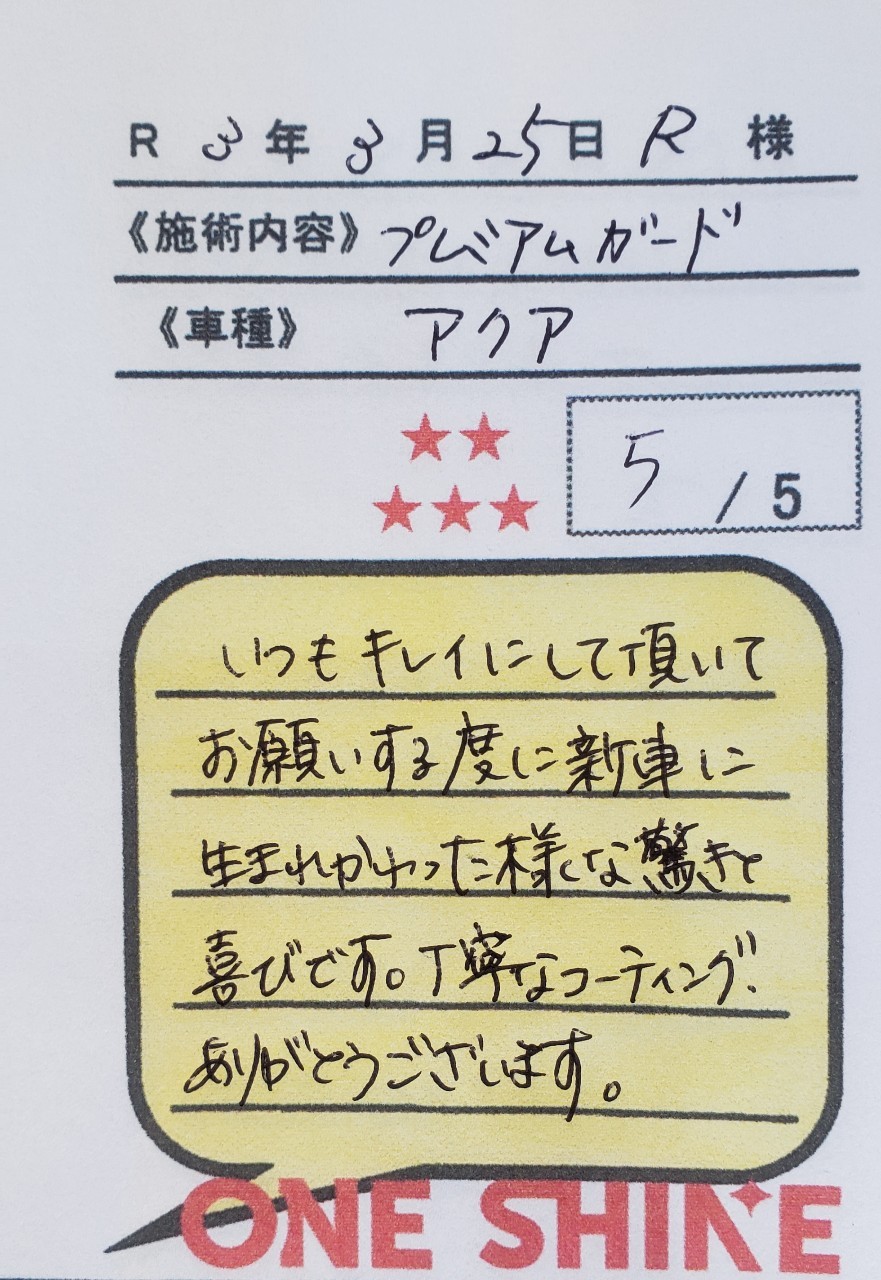 R 3年3月25日 R 様
《施術内容》プレミアムガード
《車種》 アクア
5 / 5
いつもキレイにして頂いて
お願いする度に新車に
生まれかわった様な驚きと
喜びです。丁寧なコーティング、
ありがとうございます。
ONE SHINE